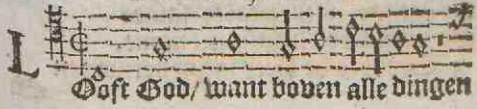 LOoft God/ want boven alle dingen